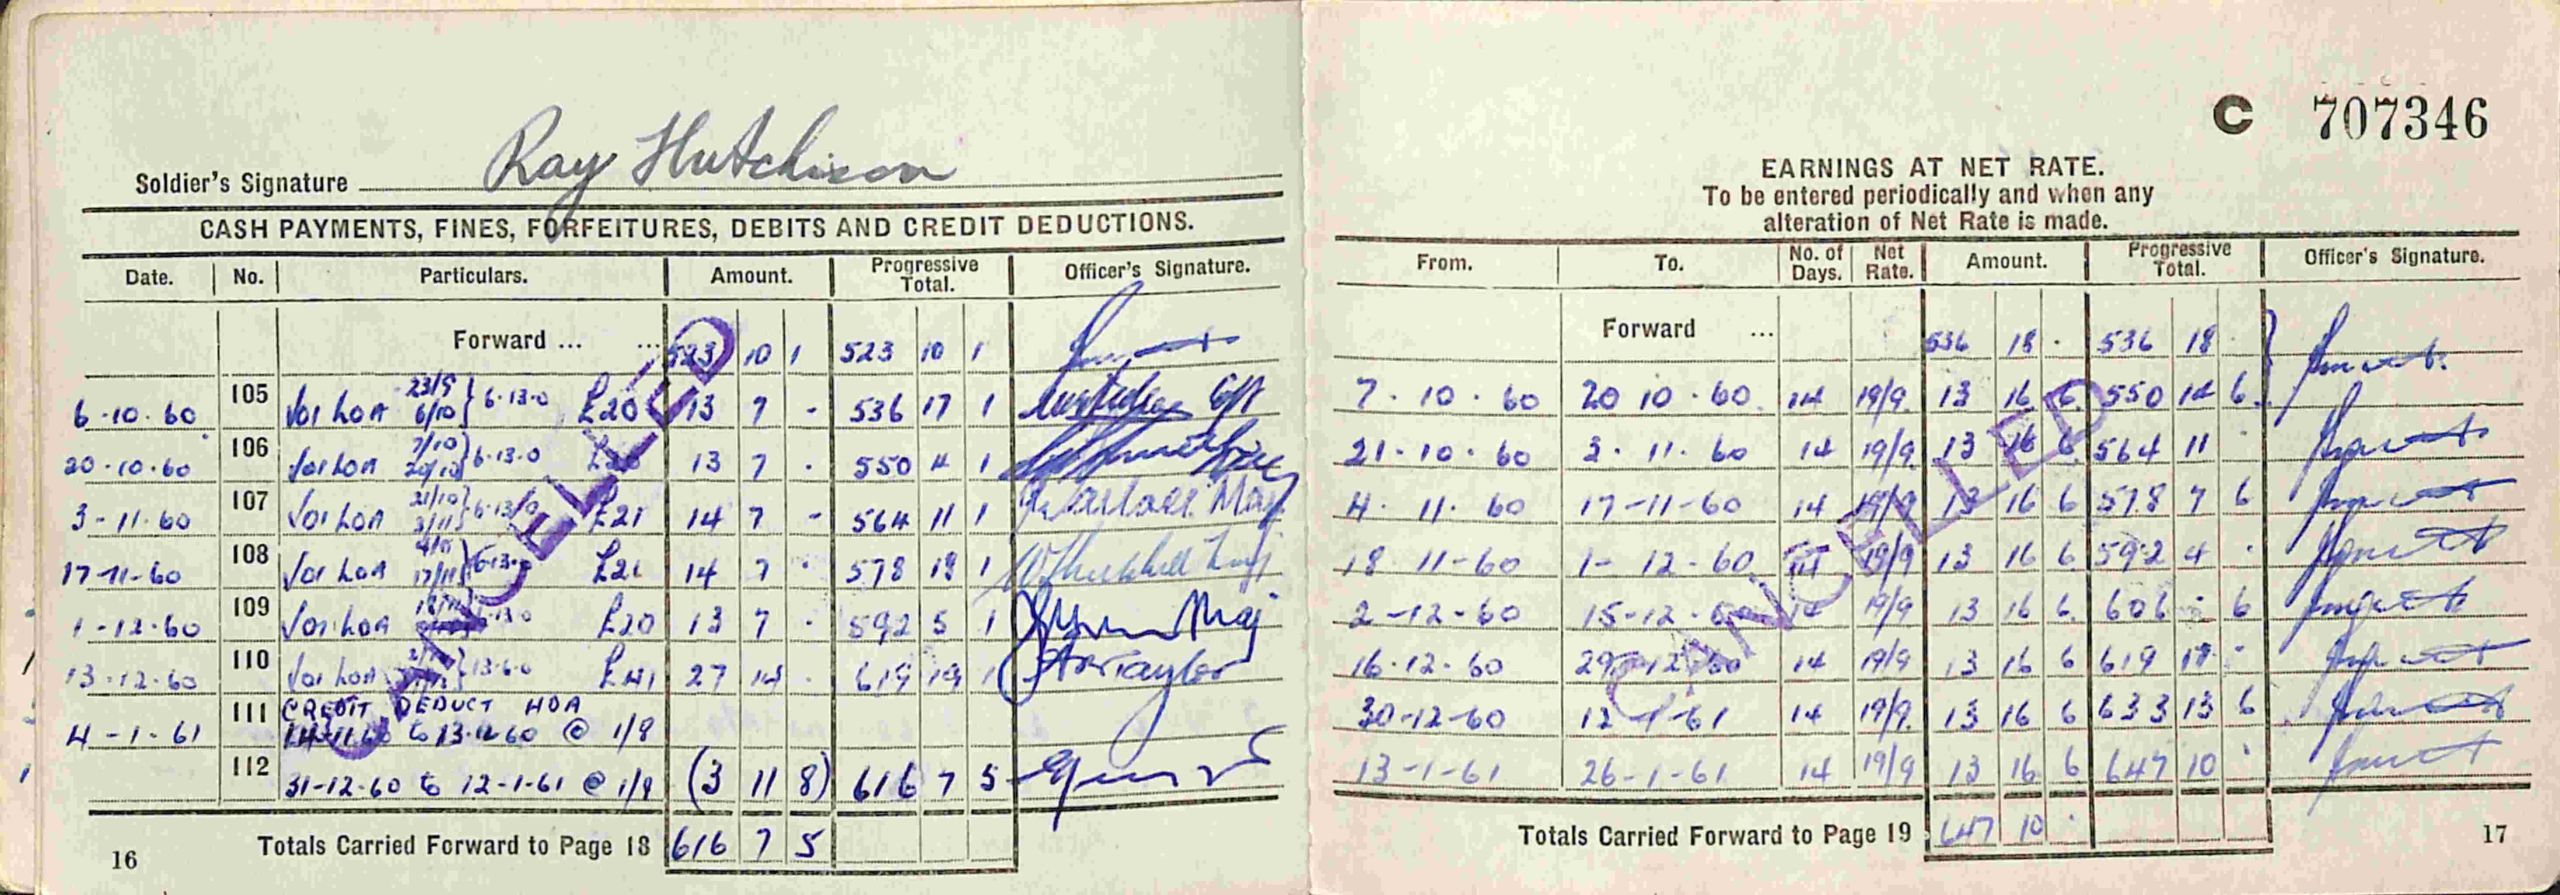 Ray Hutchison
Soldier's Signature
CASH PAYMENTS, FINES, FORFEITURES, DEBITS AND CREDIT DEDUCTIONS.
Date. No. Particulars. Amount. Progressive Total. Officer's Signature.
Forward ... ... 523 10 1 523 10 1
6-10-60 105 23/9 6/10 6-13-0 £20 13 7 - 536 17 1
20-10-60 106 7/10 20/10 6-13-0 13 7 - 550 4 1
3-11-60 107 21/10 3/11 6-13-0 £21 14 7 - 564 11 1
17-11-60 108 4/11 17/11 6-13-0 £21 14 7 - 578 18 1
1-12-60 109 £20 13 7 - 592 5 1
13-12-60 110 13-6-0 £41 27 14 - 619 19 1
111 CREDIT DEDUCT HOA
4-1-61 to 13-12-60 @ 1/8
112 31-12-60 to 12-1-61 @ 1/8 (3 11 8) 616 7 5
Totals Carried Forward to Page 18 616 7 5
16
CANCELLED
C 707346
EARNINGS AT NET RATE.
To be entered periodically and when any
alteration of Net Rate is made.
From. To. No. of Days. Net Rate. Amount. Progressive Total. Officer's Signature.
Forward ... 536 18 - 536 18 -
7-10-60 20-10-60 14 19/9 13 16 6 550 14 6
21-10-60 3-11-60 14 19/9 13 16 6 564 11 -
4-11-60 17-11-60 14 19/9 13 16 6 578 7 6
18-11-60 1-12-60 14 19/9 13 16 6 592 4 -
2-12-60 15-12-60 14 19/9 13 16 6 606 - 6
16-12-60 29-12-60 14 19/9 13 16 6 619 17 -
30-12-60 12-1-61 14 19/9 13 16 6 633 13 6
13-1-61 26-1-61 14 19/9 13 16 6 647 10 -
Totals Carried Forward to Page 19 647 10 -
17
CANCELLED